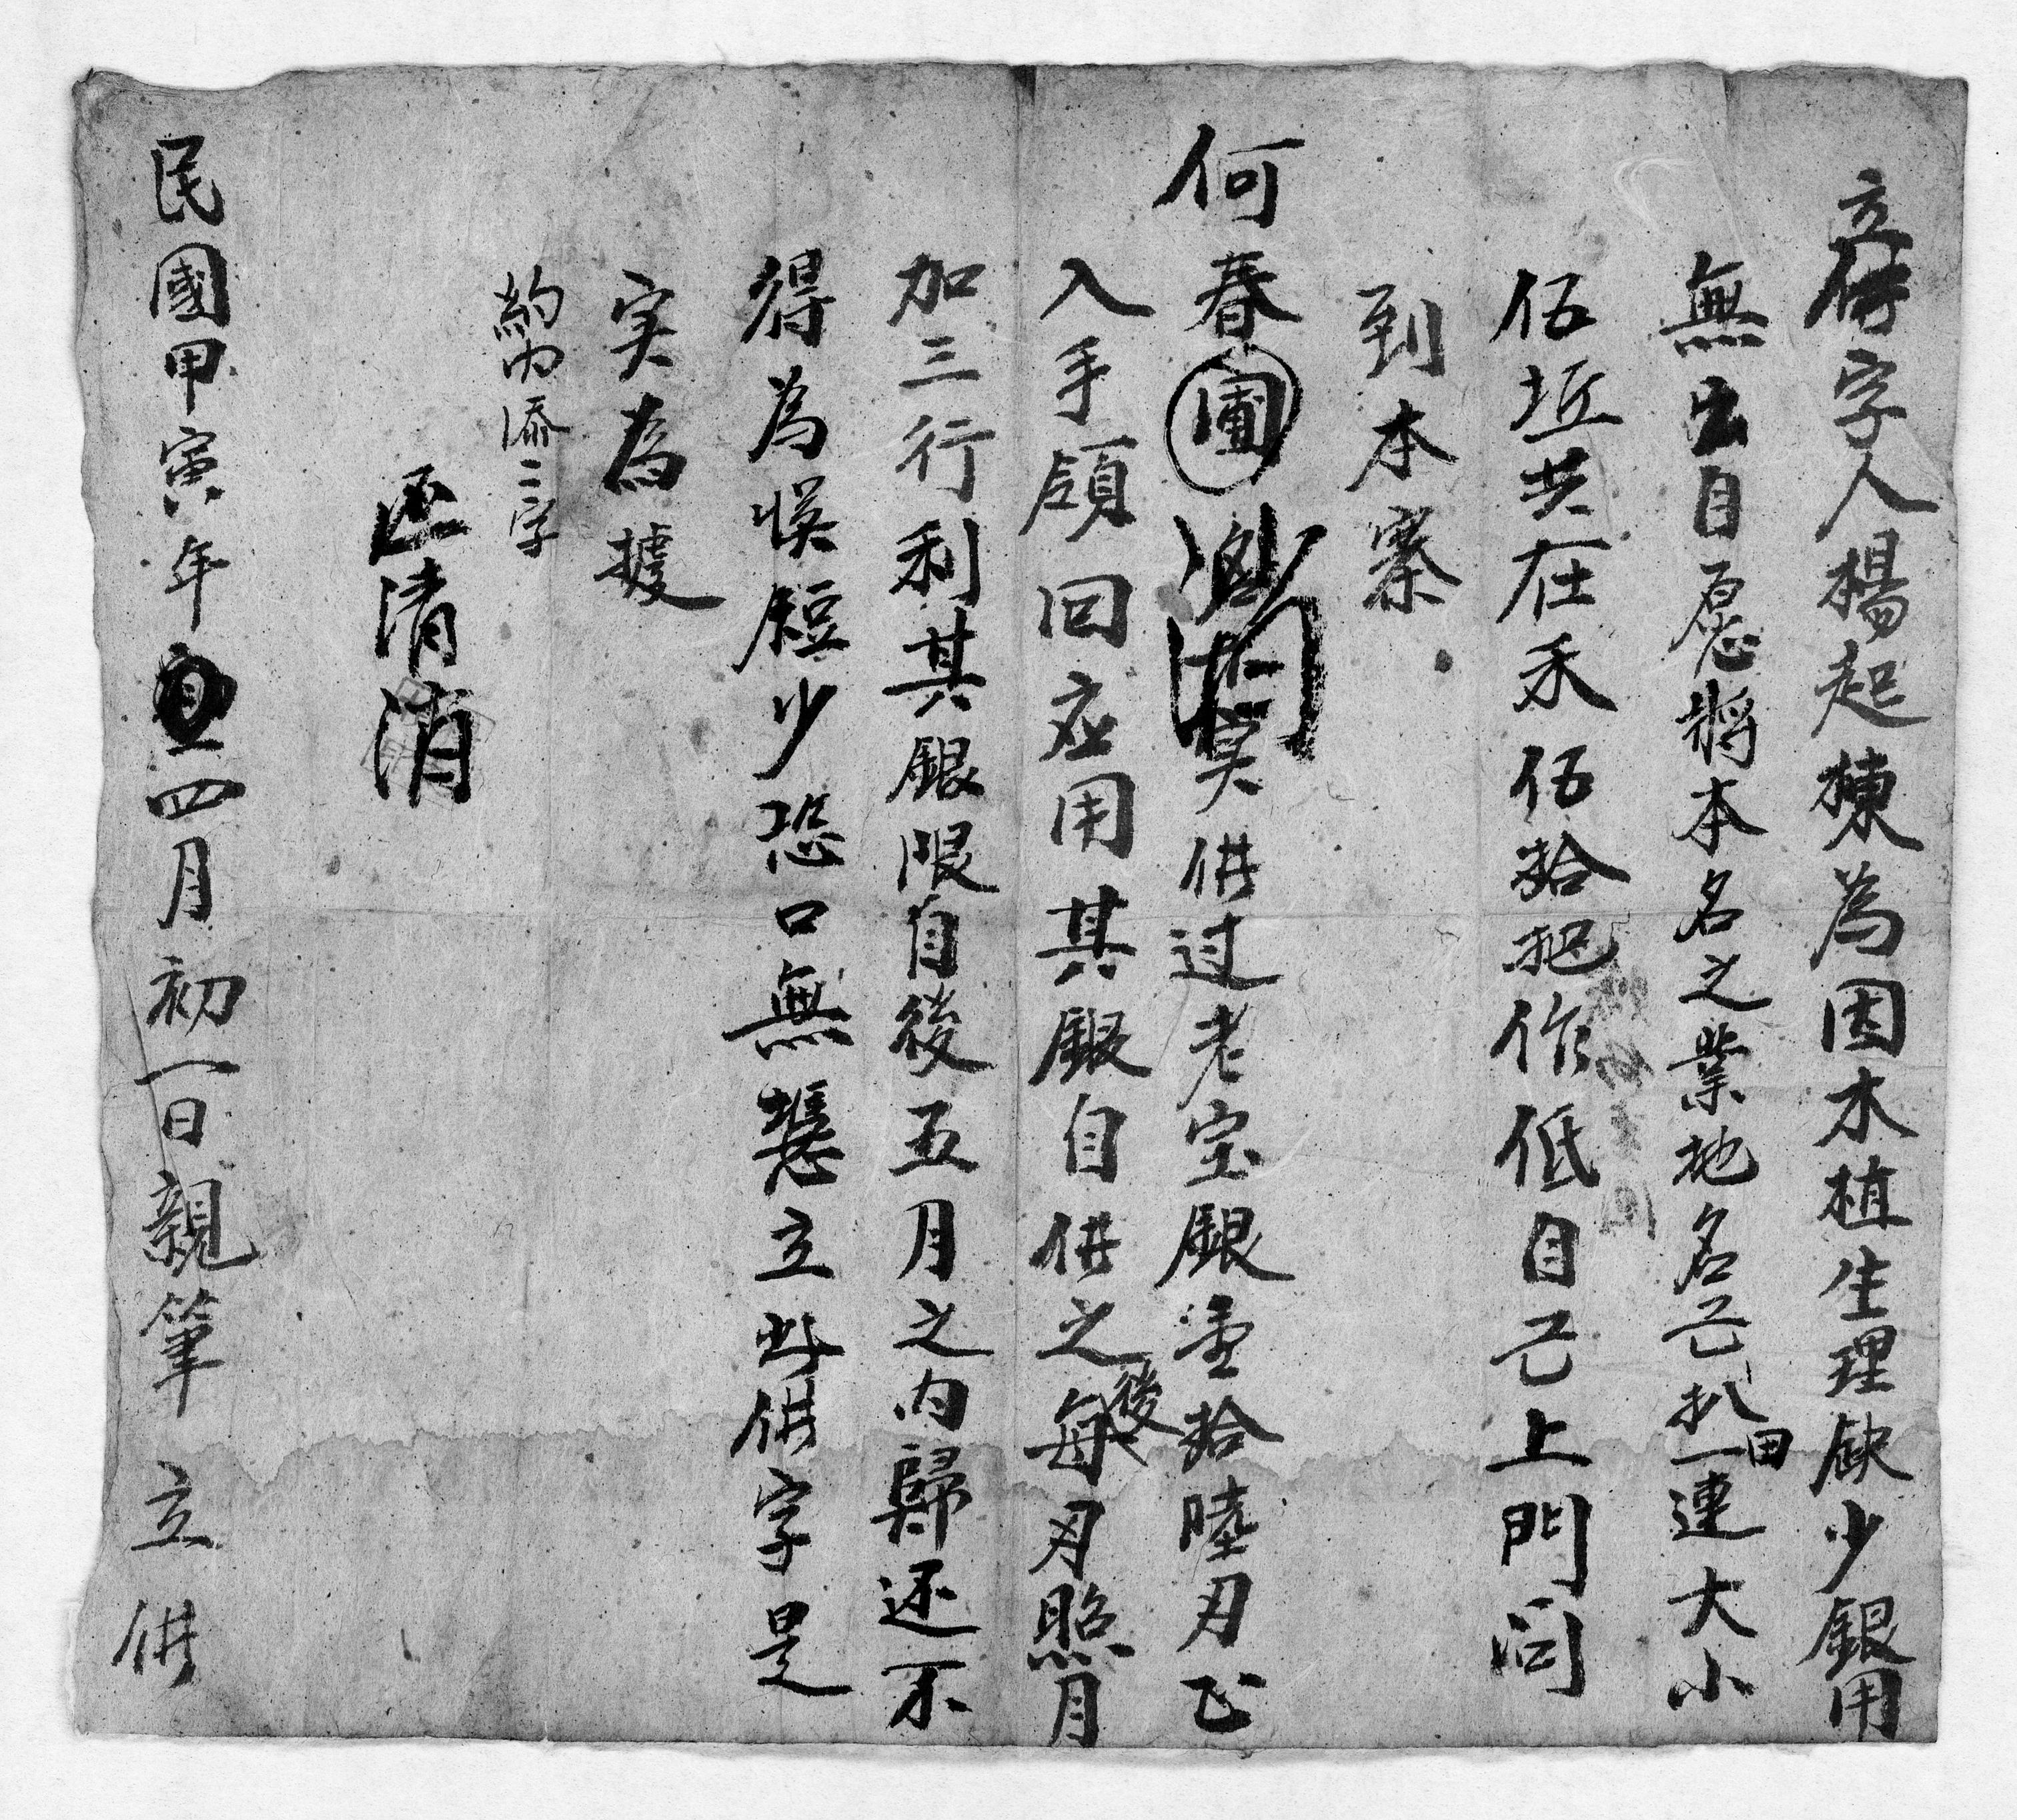 立借字人楊起棟為因木植生理缺少銀用
無出自愿將本名之業地名芒扒田一連大小
伍坵共在禾伍拾把作低自己上門问
到本寨
何春圃 名 吴借过老宝銀壹拾陸刃正
入手領回应用其銀自借之後每月照月
加三行利其銀限自後五月之内歸还不
得為悞短少恐口無憑立此借字是
実為據
約内添二字
还清消
民國甲寅年四月初一日親筆 立 借